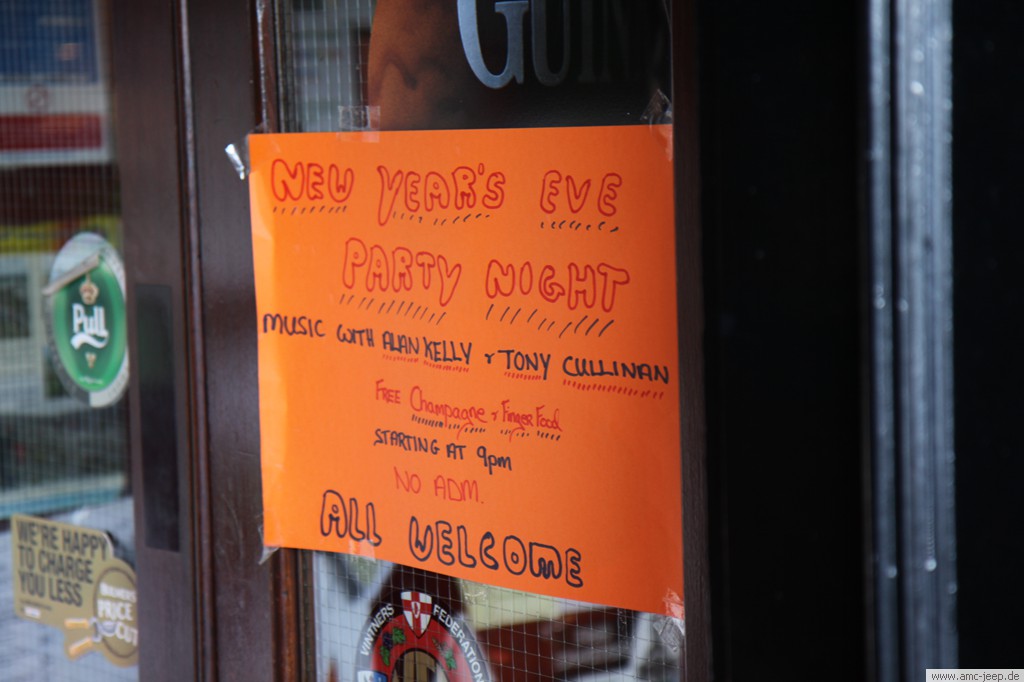 GUIN
NEW YEAR'S EVE
PARTY NIGHT
MUSIC WITH ALAN KELLY & TONY CULLINAN
FREE Champagne & Finger Food
STARTING AT 9pm
NO ADM.
ALL WELCOME
Pull
WE'RE HAPPY
TO CHARGE
YOU LESS
PRICE
CUT
VINTNERS FEDERATION
www.amc-jeep.de